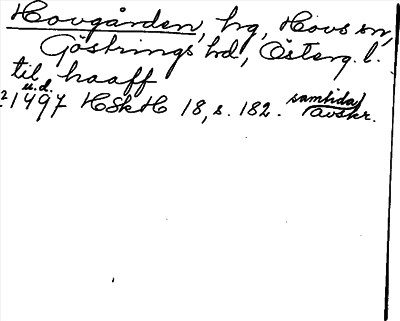 Hovgården, hg, Hovs sn,
Göstrings hd, Österg. l.
til haaff
u.d.
?1497 HSkH 18, s. 182. samtida
avskr.